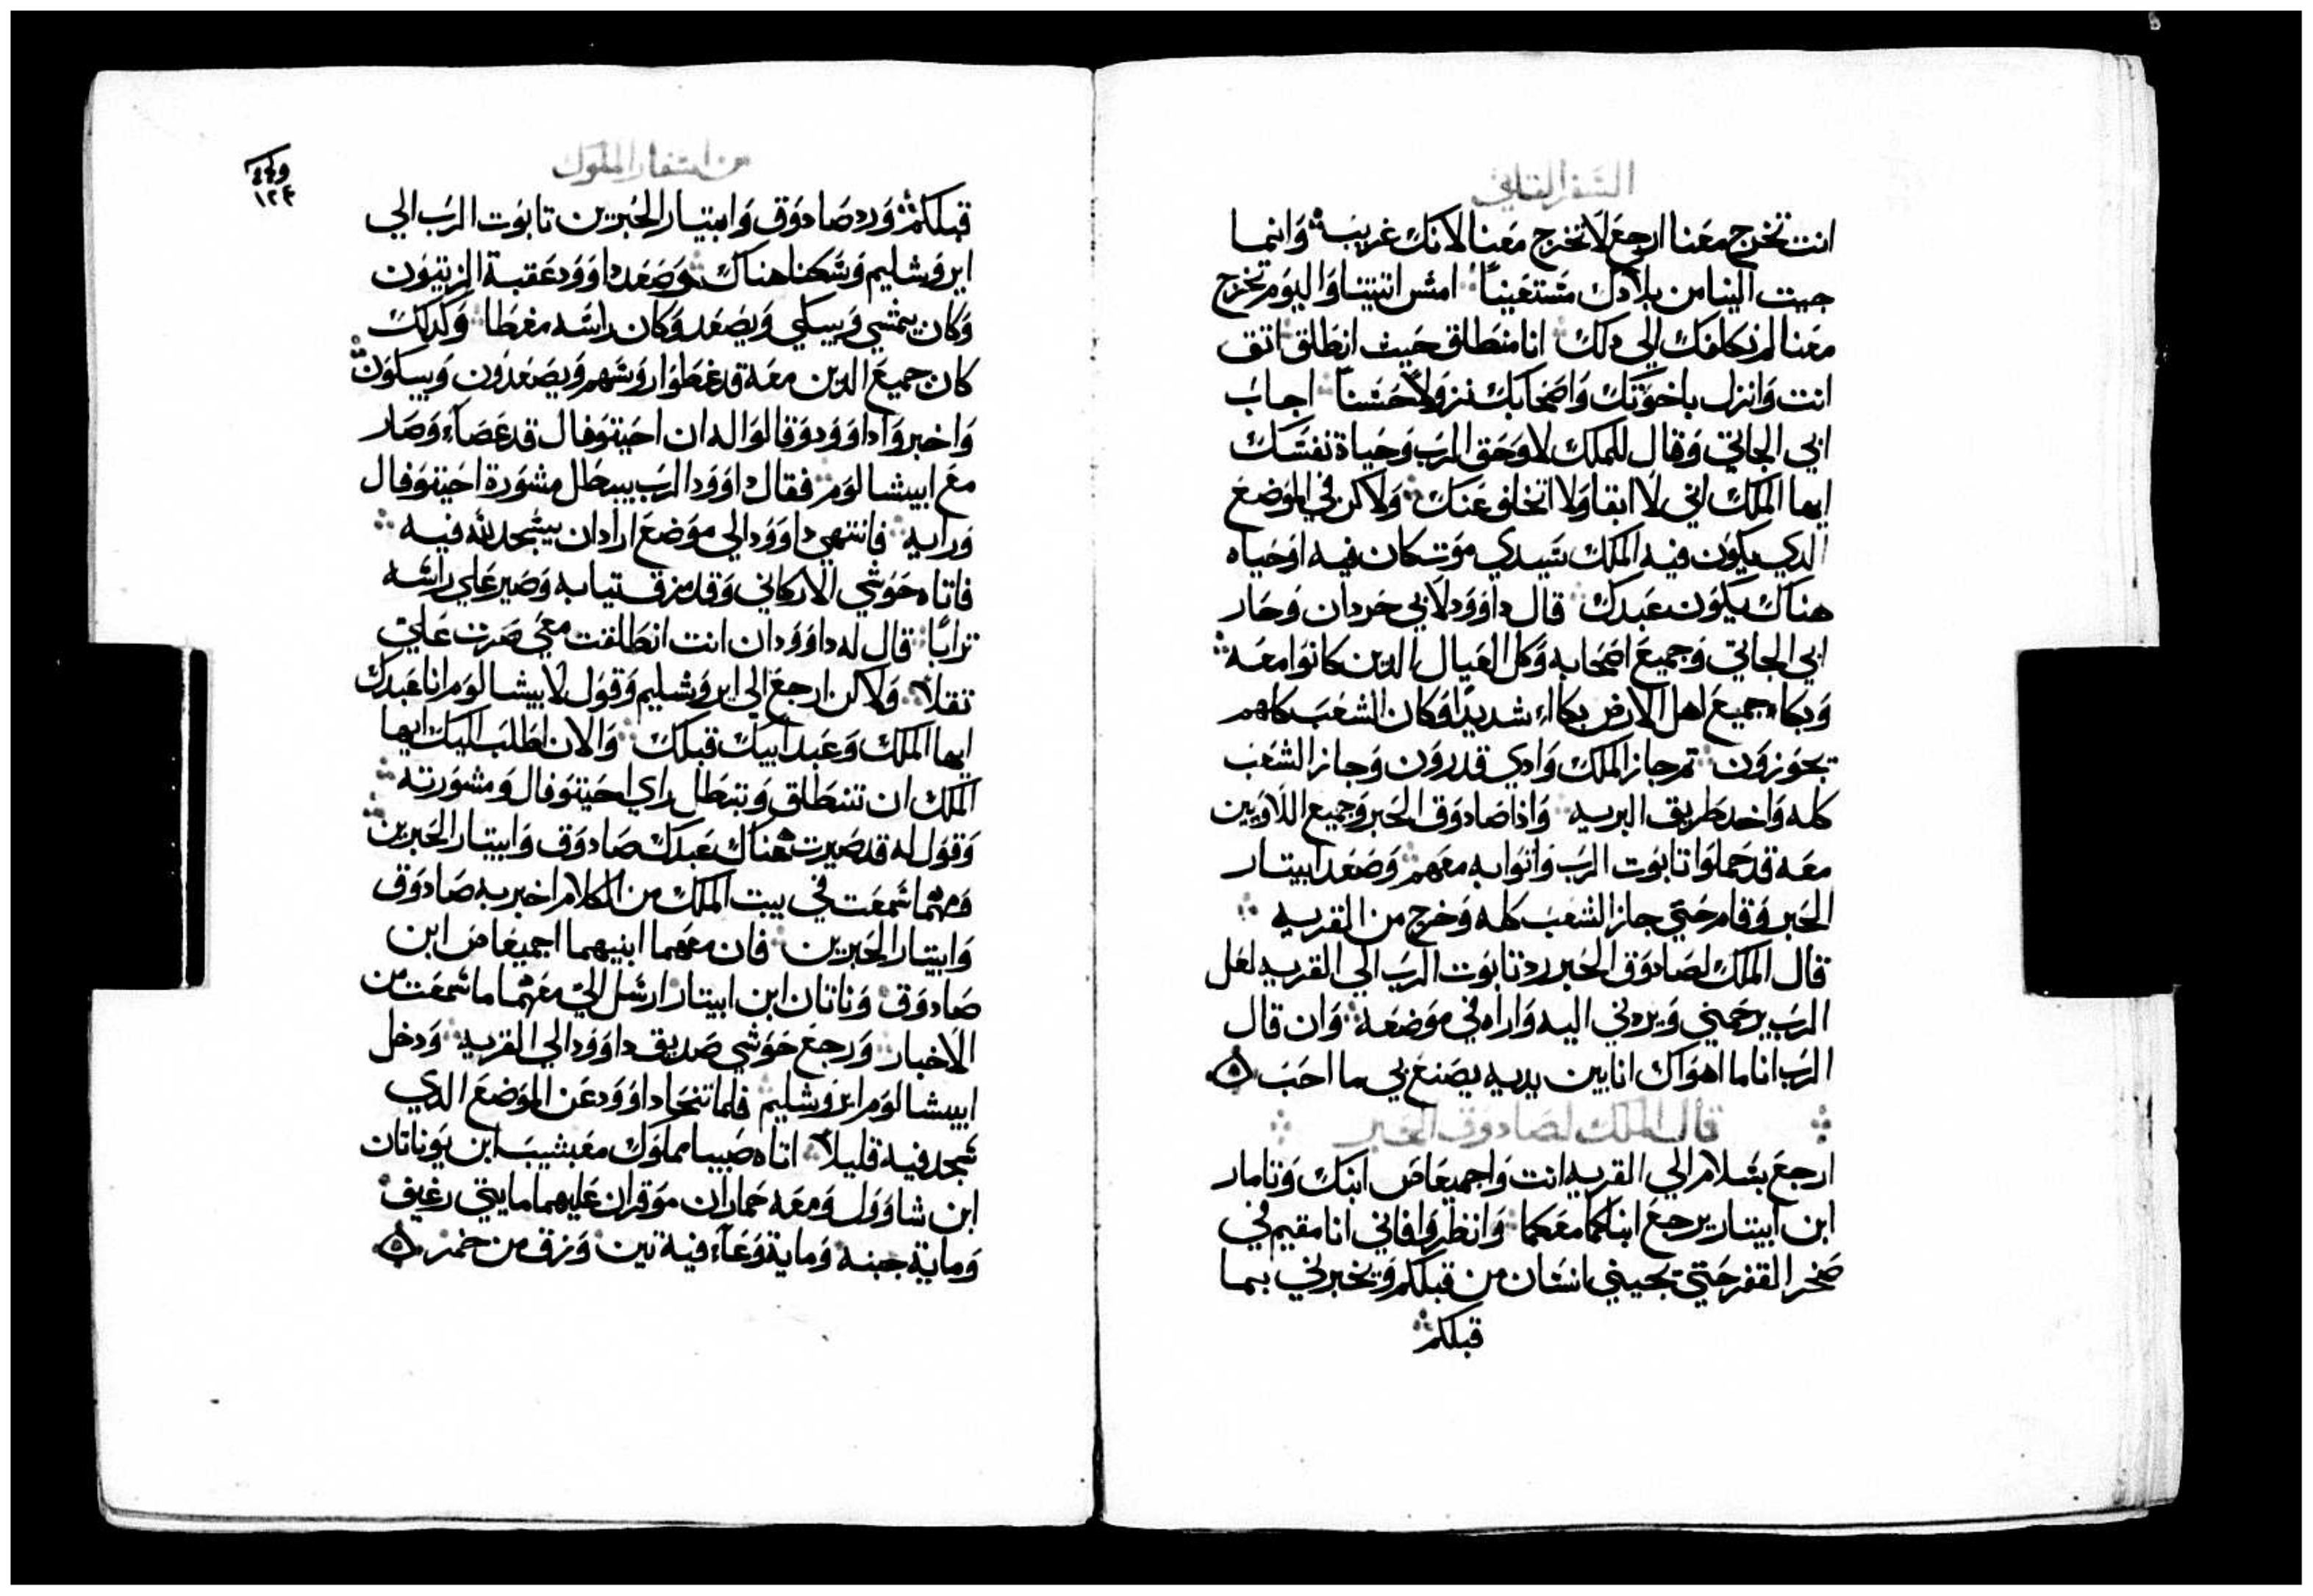 السفر الثاني
انت تخرج معنا ارجع لا تخرج معنا لانك غريب وانما
جيت الينا من بلادك مستغيثاً امس اتيتنا واليوم تخرج
معنا لم نكلفك الي دلك انا منطلق حيث انطلق اتق
انت وانزل باخوتك واصحابك نزولاً حسناً اجاب
اتي الجاتي وقال للملك لا وحق الرب وحياة نفسك
ايها الملك اني لا ابقا ولا اتخلف عنك ولاكن في الموضع
الدي يكون فيه الملك سيدي موت كان فيه او حياه
هناك يكون عبدك قال داوود لاتي جردان وجاز
اتي الجاتي وجميع اصحابه وكل العيال الدين كانوا معه
وبكا جميع اهل الارض بكاء شديداً وكان الشعب كلهم
يجوزون تم جاز الملك وادي قدرون وجاز الشعب
كله واخد طريق البريه واذا صادوق الحبر وجميع اللاويين
معه قد حملوا تابوت الرب واتوا به معهم وصعد ابيتار
الحبر وقام حتي جاز الشعب كله وخرج من القريه
قال الملك لصادوق الحبر رد تابوت الرب الي القريه لعل
الرب يرحمني ويردني اليه واراه في موضعه وان قال
الرب انا ما اهواك انا بين يديه يصنع بي ما احب
قال الملك لصادوق الحبر
ارجع بسلام الي القريه انت واجميعاص ابنك وناتار
ابن ابيتار يرجع ابنكما معكما وانظروا فاني انا مقيم في
صخر القفر حتي يجيني انسان من قبلكم ويخبرني بما
قبلكم
من اسفار الملوك
قبلكم ورد صادوق وابيتار الحبرين تابوت الرب الي
ايروشليم وسكنا هناك وصعد داوود عقبة الزيتون
وكان يمشي ويبكي ويصعد وكان راسه مغطا وكدلك
كان جميع الدين معه قد غطوا روسهم ويصعدون ويبكون
واخبروا داوود وقالوا له ان احيتوفال قد عصاء وصار
مع ابيشالوم فقال داوود الرب يبطل مشورة احيتوفال
ورايه فانتهي داوود الي موضع اراد ان يسجد لله فيه
فاتاه حوشي الاركاني وقد مزق تيابه وصير علي راسه
تراباً قال له داوود ان انت انطلقت معي صرت علي
تقلاً ولاكن ارجع الي ايروشليم وقول لابيشالوم انا عبدك
ايها الملك وعبد ابيك قبلك والان اطلب اليك ايها
الملك ان تنطلق وتبطل راي احيتوفال ومشورته
وقول له قد صيرت هناك عبدك صادوق وابيتار الحبرين
ومهما سمعت في بيت الملك من الكلام اخبر به صادوق
وابيتار الحبرين فان معهما ابنيهما اجميعاص ابن
صادوق وناتان ابن ابيتار ارسل الي معهما ما سمعت من
الاخبار ورجع حوشي صديق داوود الي القريه ودخل
ابيشالوم ايروشليم فلما تنحا داوود عن الموضع الدي
سجد فيه قليلاً اتاه صيبا مملوك مفبشيب ابن يوناتان
ابن شاوول ومعه حماران موقران عليهما مايتي رغيف
ومايه جبنه ومايه وعاء فيه تين وزق من خمر